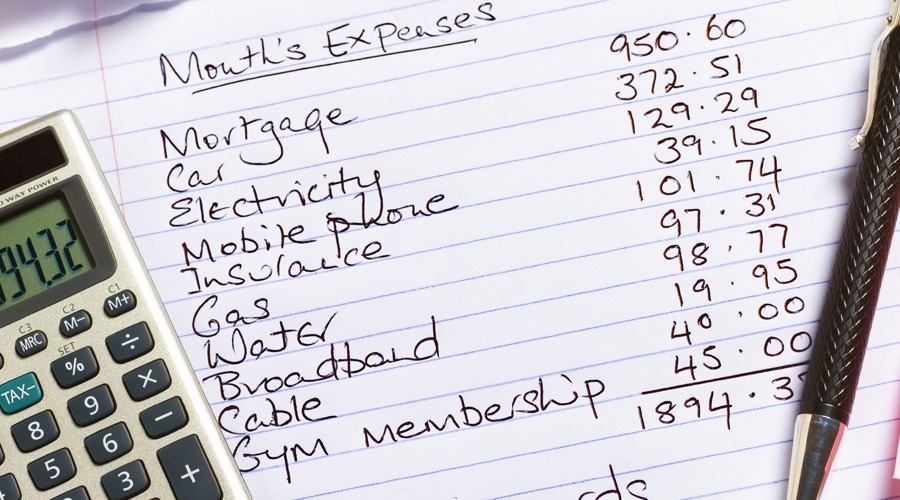 Month's Expenses
Mortgage 950.60
Car 372.51
Electricity 129.29
Mobile phone 39.15
Insurance 101.74
Gas 97.31
Water 98.77
Broadband 19.95
Cable 40.00
Gym Membership 45.00
1894.3
WAY POWER
94.32
C3 C2 C1
MRC M− M+
SET
TAX− % ÷
8 9 × −
5 6 +
3